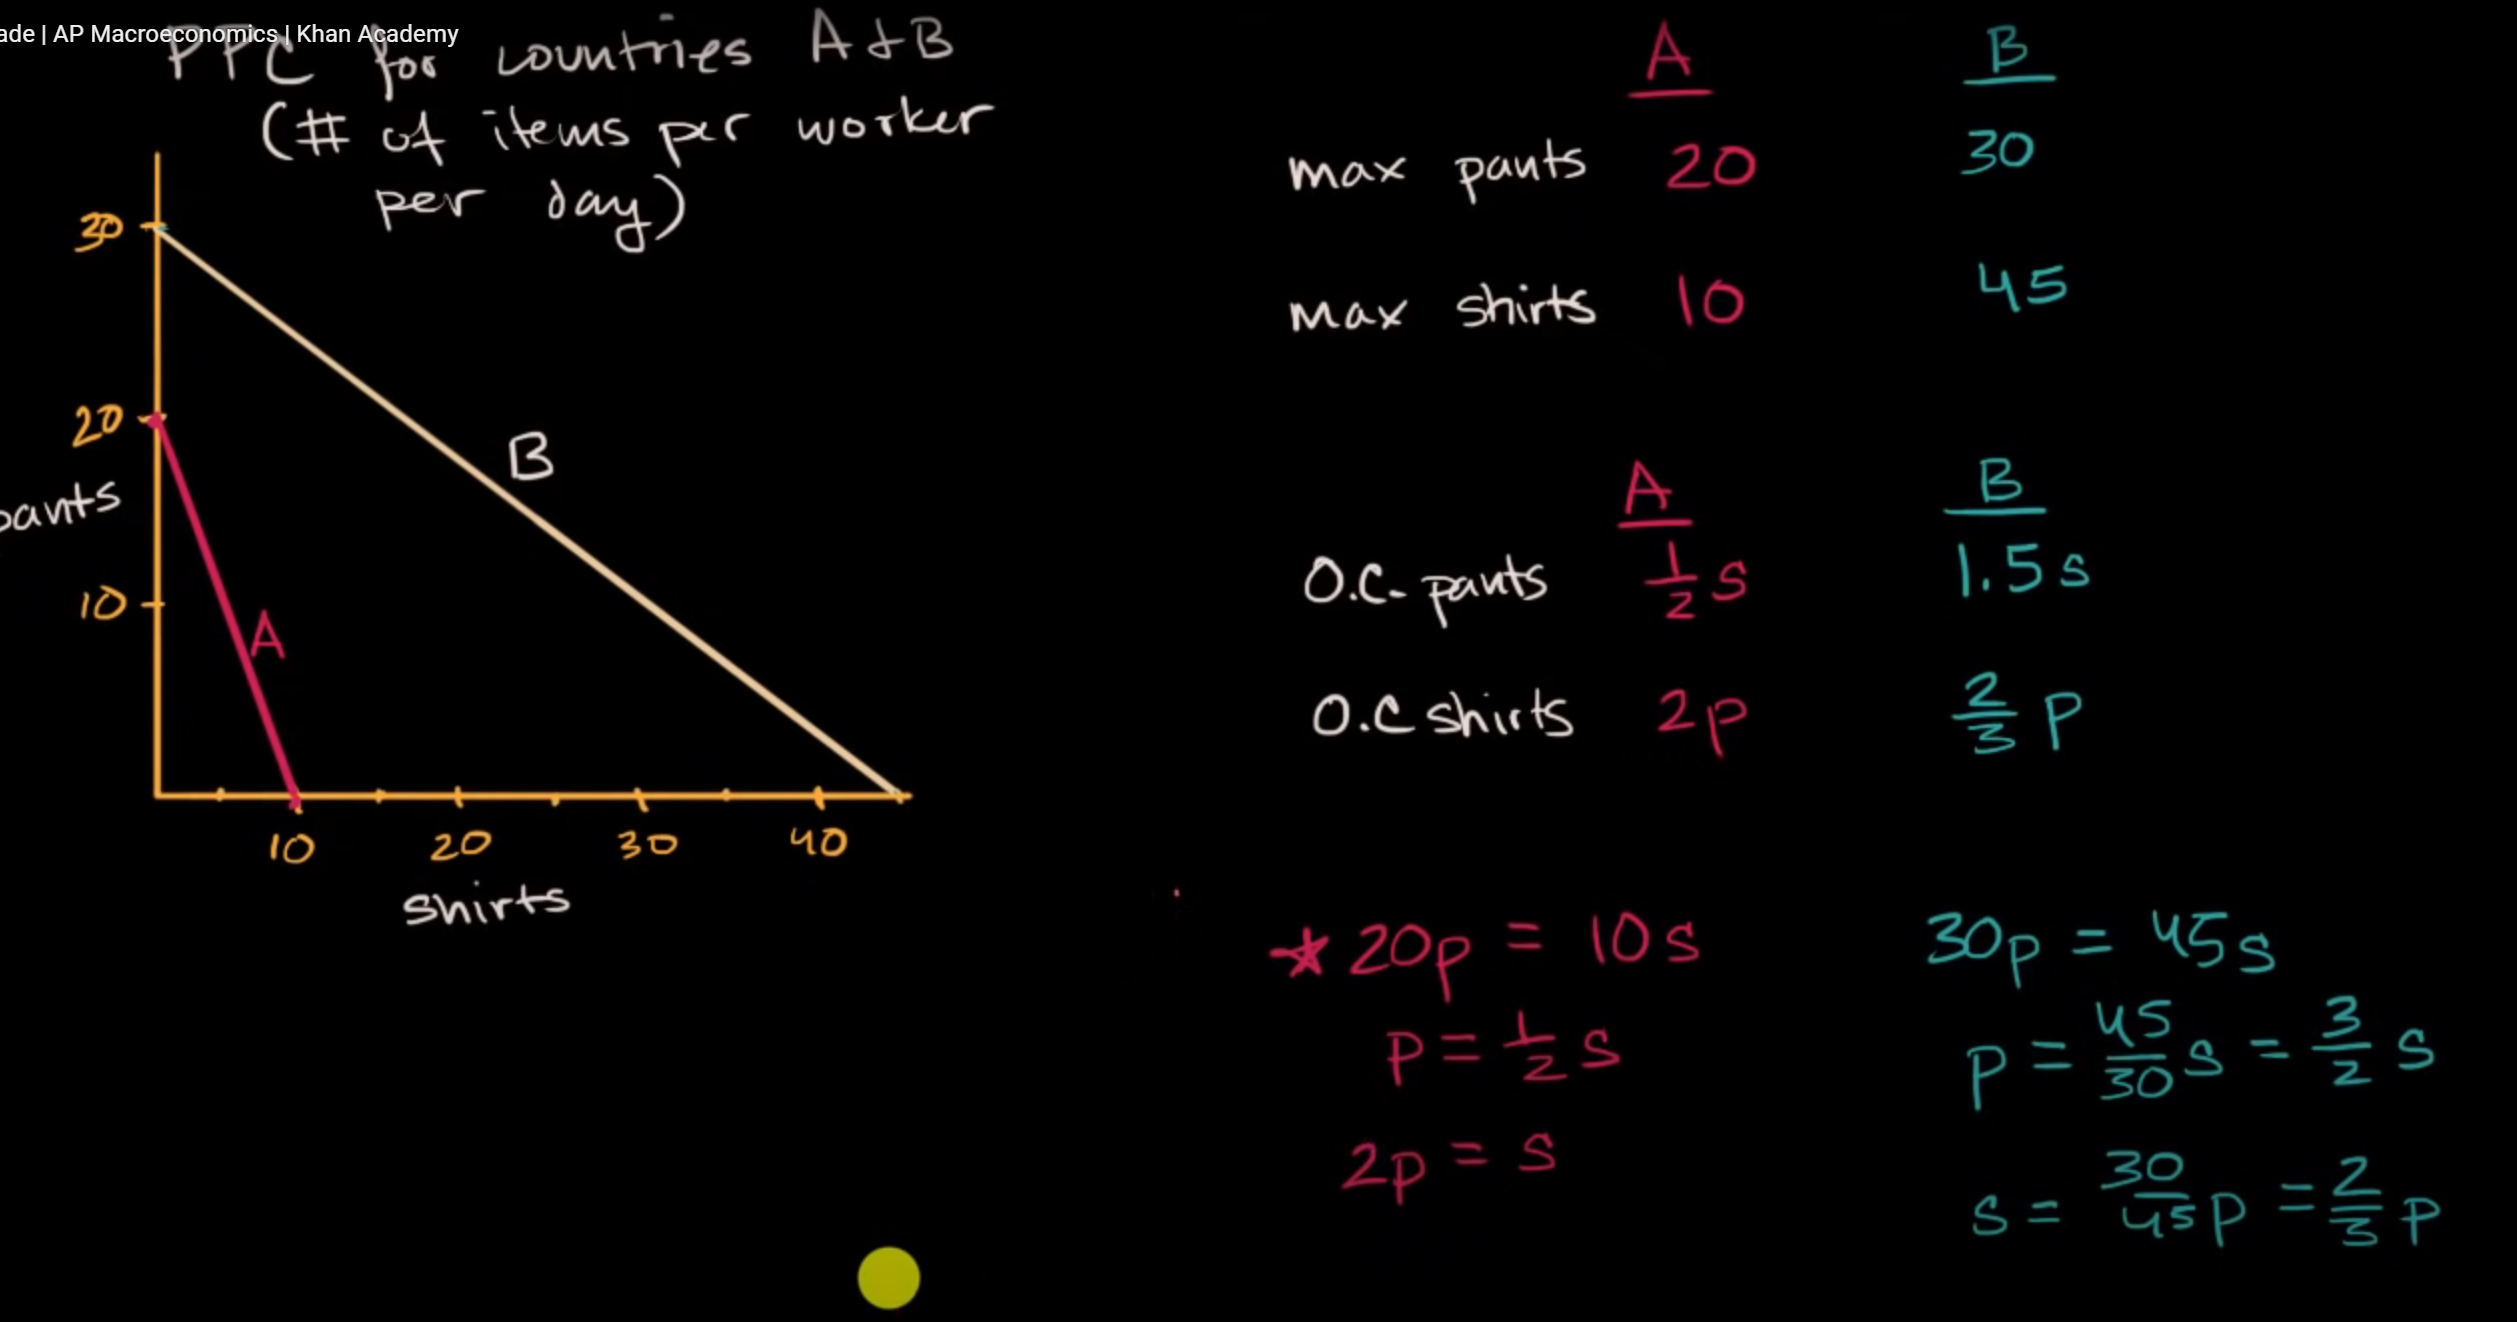 ade | AP Macroeconomics | Khan Academy
PPC for countries A + B
(# of items per worker
per day)
30
20
pants
10
B
A
10 20 30 40
shirts
A B
max pants 20 30
max shirts 10 45
A B
O.C. pants 1/2 s 1.5 s
O.C shirts 2p 2/3 p
* 20p = 10s
p = 1/2 s
2p = s
30p = 45s
p = 45/30 s = 3/2 s
s = 30/45 p = 2/3 p